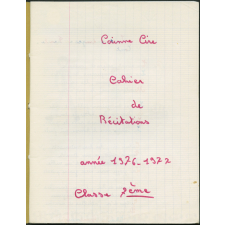 Corinne Cire
Cahier
de
Récitations
année 1976-1977
Classe 2ème